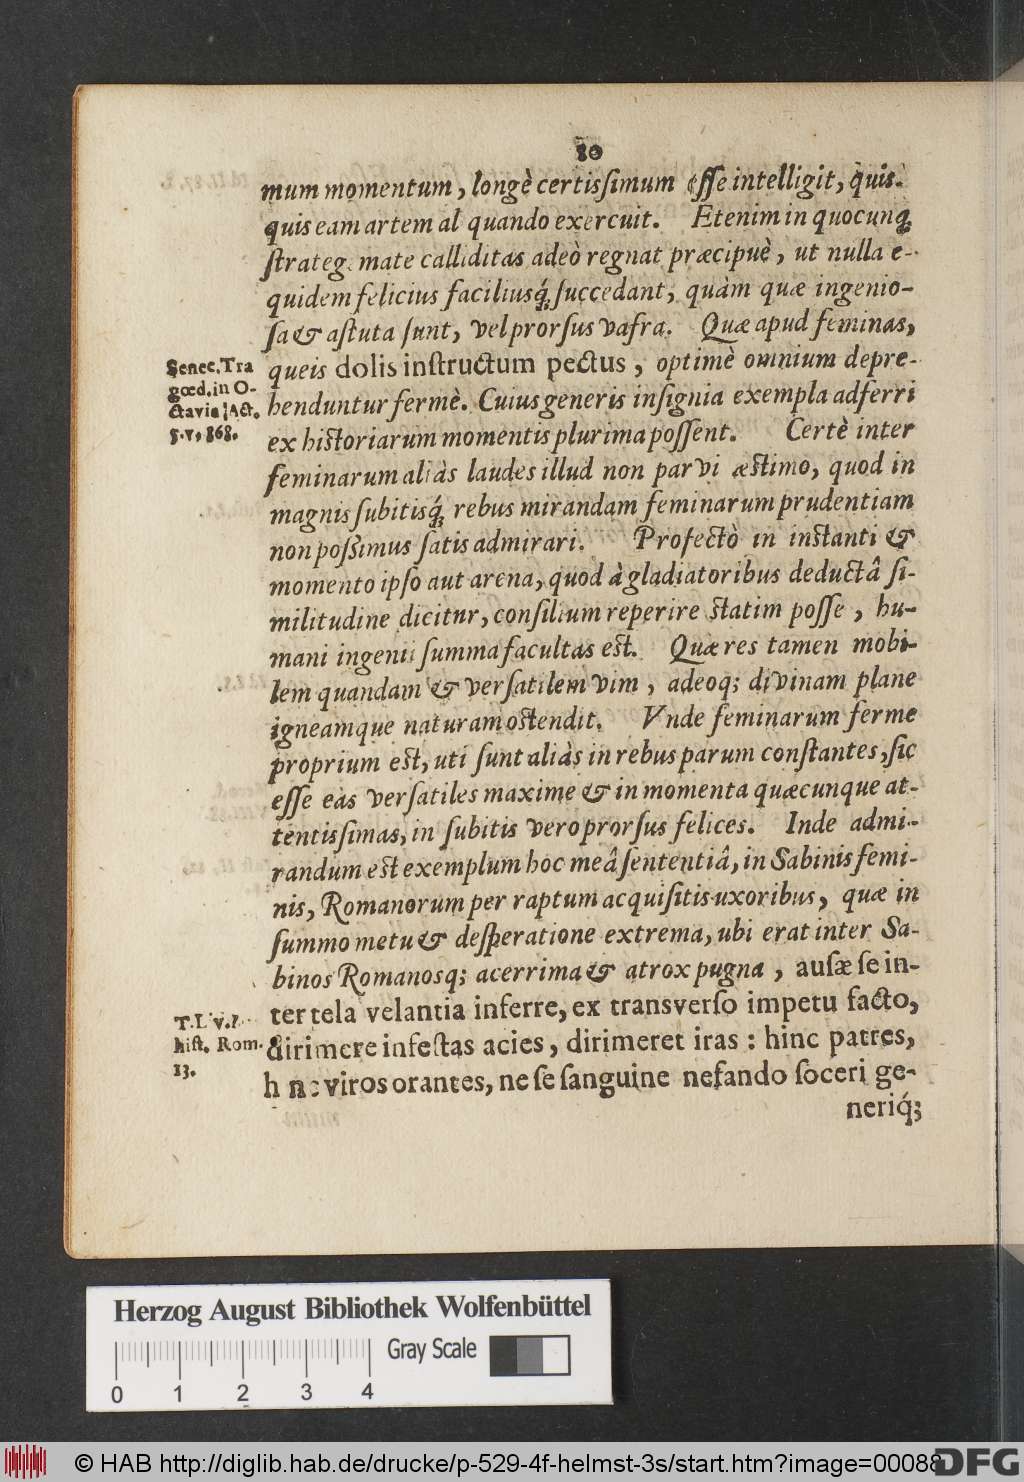 80
mum momentum, longè certissimum esse intelligit, quis-
quis eam artem al quando exercuit. Etenim in quocunq́
strateg mate calliditas adeò regnat præcipuè, ut nulla e-
quidem felicius faciliusq́ succedant, quàm quæ ingenio-
sa & astuta sunt, vel prorsus vafra. Quæ apud feminas,
queis dolis instructum pectus, optimè omnium depre-
henduntur fermè. Cuius generis insignia exempla adferri
ex historiarum momentis plurima possent. Certè inter
feminarum aliàs laudes illud non parvi æstimo, quod in
magnis subitisq́ rebus mirandam feminarum prudentiam
non possimus satis admirari. Profectò in instanti &
momento ipso aut arena, quod à gladiatoribus deductâ si-
militudine dicitur, consilium reperire statim posse, hu-
mani ingenii summa facultas est. Quæ res tamen mobi-
lem quandam & versatilem vim, adeoq; divinam plane
igneamque naturam ostendit. Vnde feminarum ferme
proprium est, uti sunt aliàs in rebus parum constantes, sic
esse eas versatiles maxime & in momenta quæcunque at-
tentissimas, in subitis vero prorsus felices. Inde admi-
randum est exemplum hoc meâ sententiâ, in Sabinis femi-
nis, Romanorum per raptum acquisitis uxoribus, quæ in
summo metu & desperatione extrema, ubi erat inter Sa-
binos Romanosq; acerrima & atrox pugna, ausæ se in-
ter tela velantia inferre, ex transverso impetu facto,
dirimere infestas acies, dirimeret iras: hinc patres,
h nc viros orantes, ne se sanguine nefando soceri ge-
neriq́;
Senec. Tra
gœd. in O-
ctavia Act.
5. v. 868.
T. Liv. l.
hist. Rom.
13.
Herzog August Bibliothek Wolfenbüttel
Gray Scale
0 1 2 3 4
© HAB http://diglib.hab.de/drucke/p-529-4f-helmst-3s/start.htm?image=00088
DFG